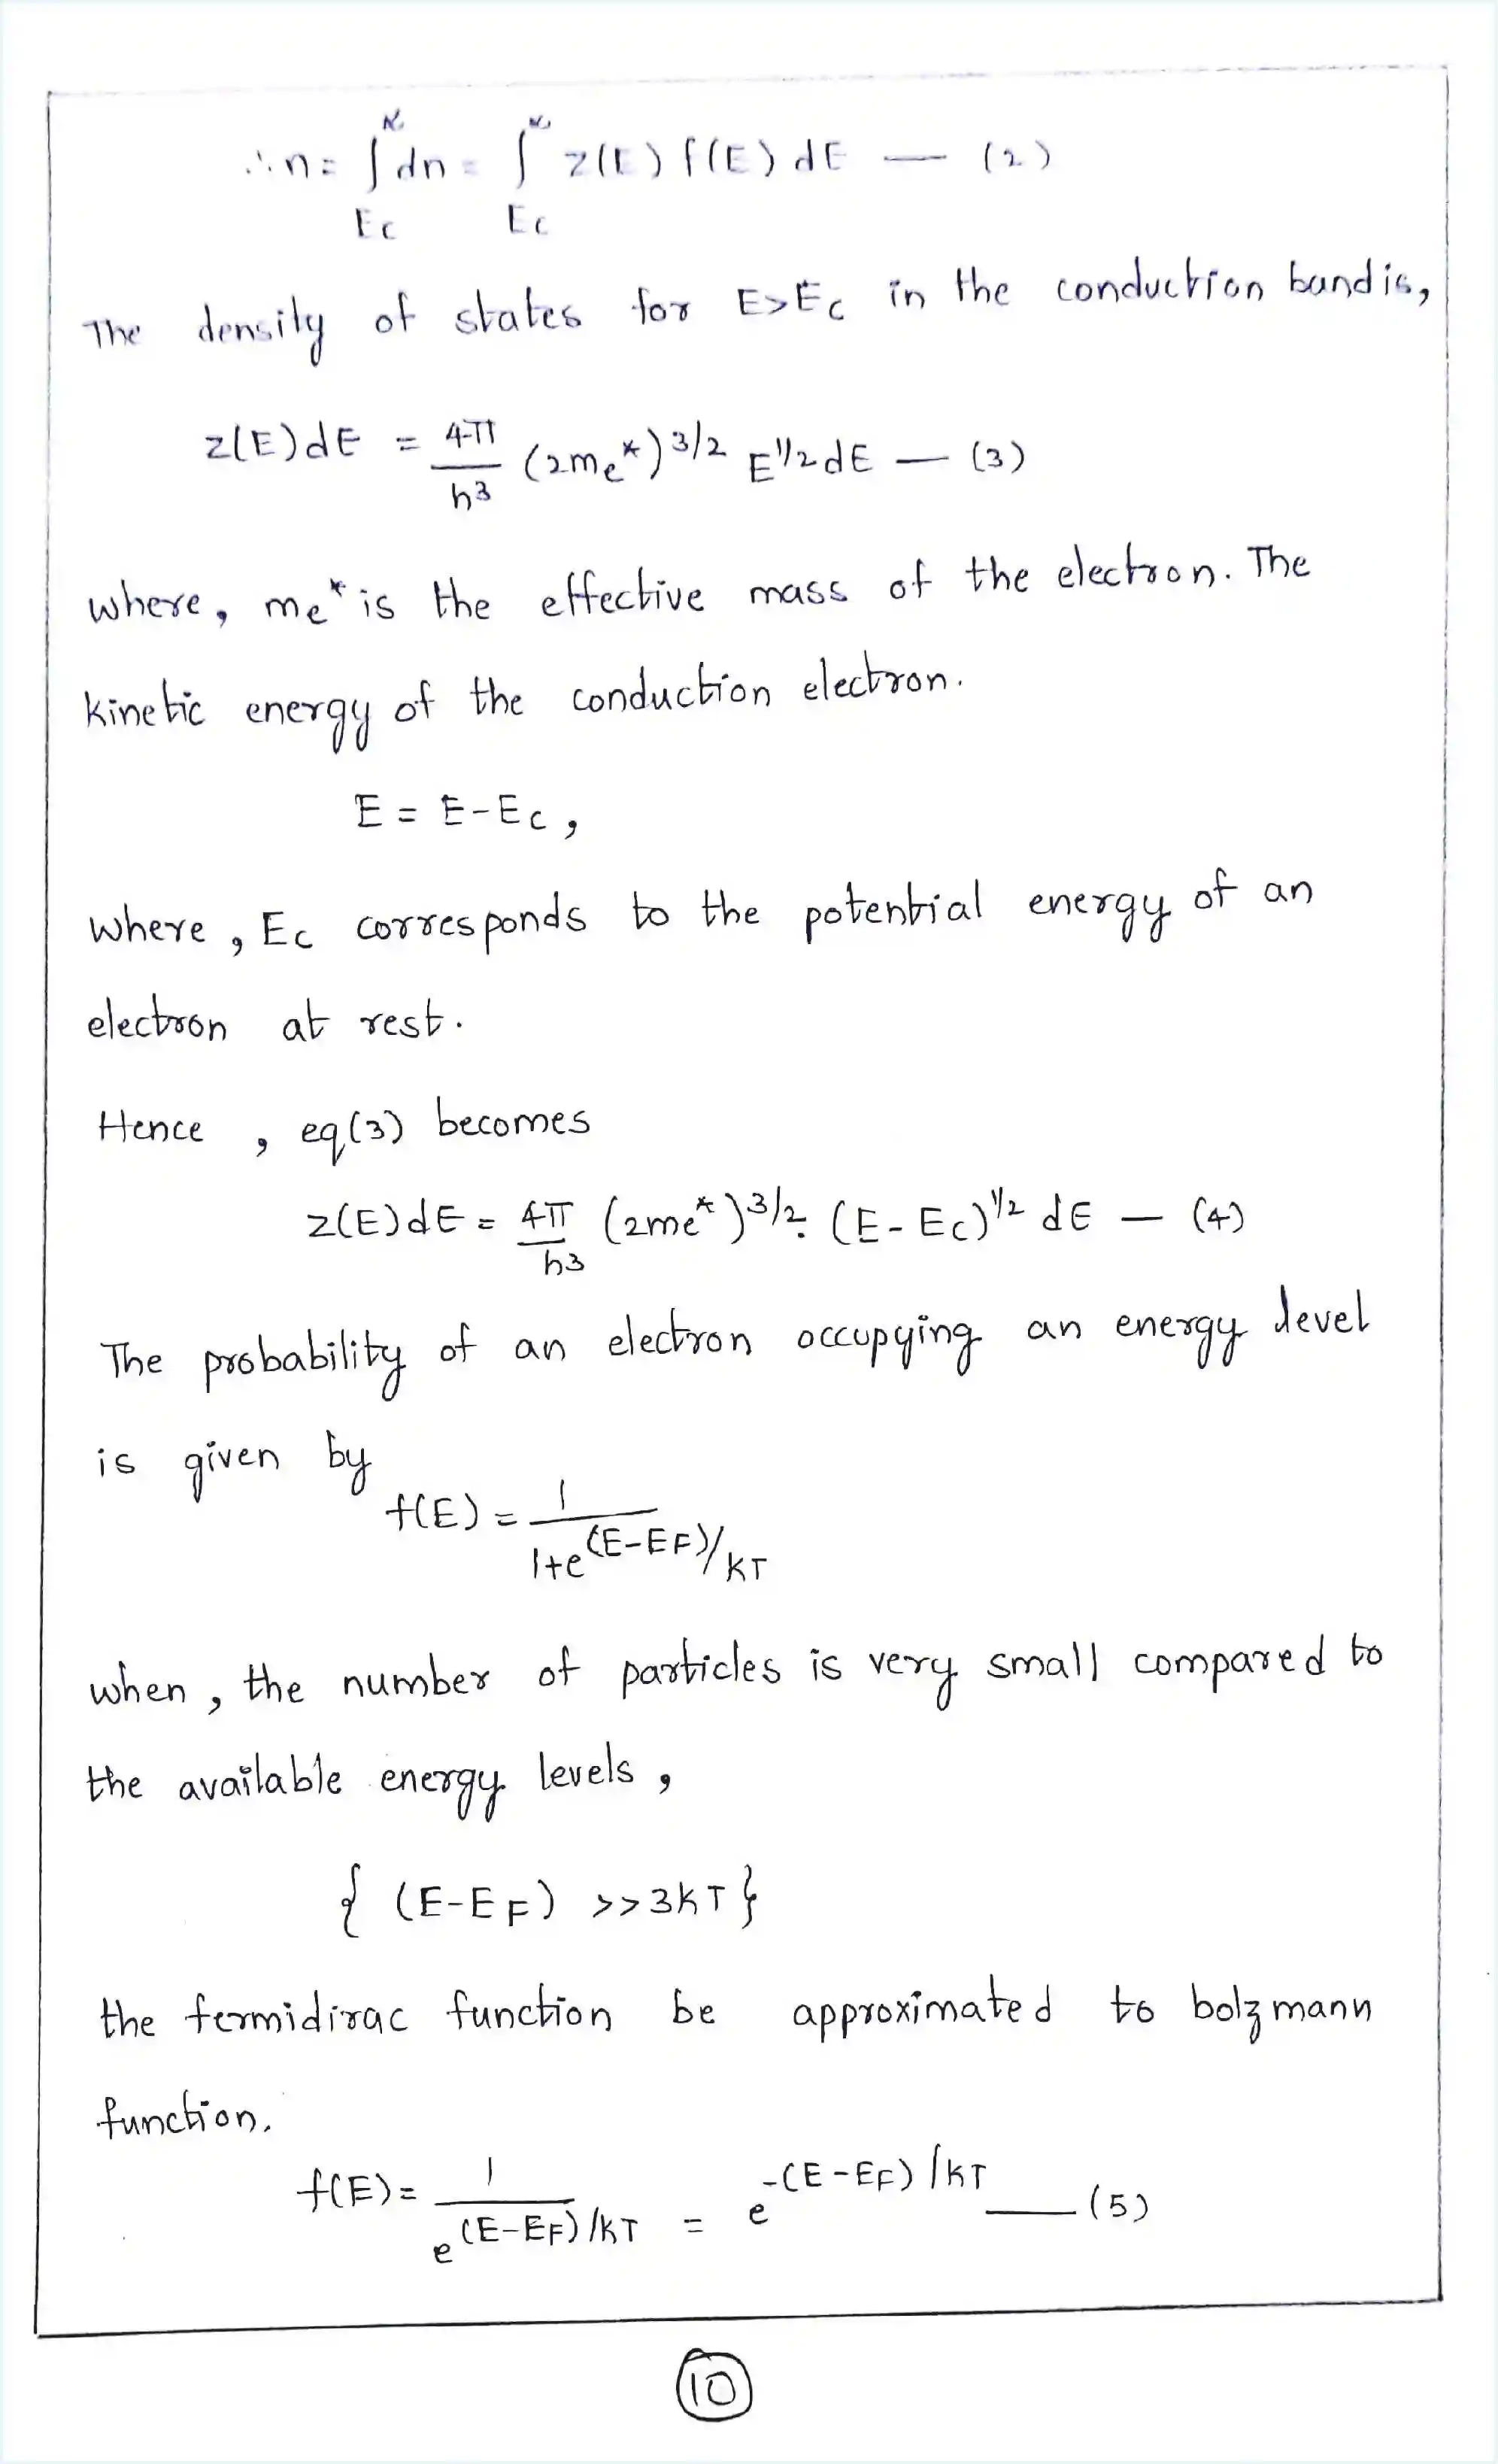 ∴ n = ∫_Ec^∞ dn = ∫_Ec^∞ z(E) f(E) dE — (2)
The density of states for E>Ec in the conduction band is,
z(E)dE = 4π/h3 (2me*)3/2 E1/2 dE — (3)
where, me* is the effective mass of the electron. The
kinetic energy of the conduction electron.
E = E-Ec,
where, Ec corresponds to the potential energy of an
electron at rest.
Hence, eq(3) becomes
z(E)dE = 4π/h3 (2me*)3/2. (E-Ec)1/2 dE — (4)
The probability of an electron occupying an energy level
is given by
f(E) = 1/1+e(E-EF)/KT
when, the number of particles is very small compared to
the available energy levels,
{ (E-EF) >>3KT }
the fermidirac function be approximated to bolzmann
function.
f(E) = 1/e(E-EF)/KT = e-(E-EF)/KT — (5)
10